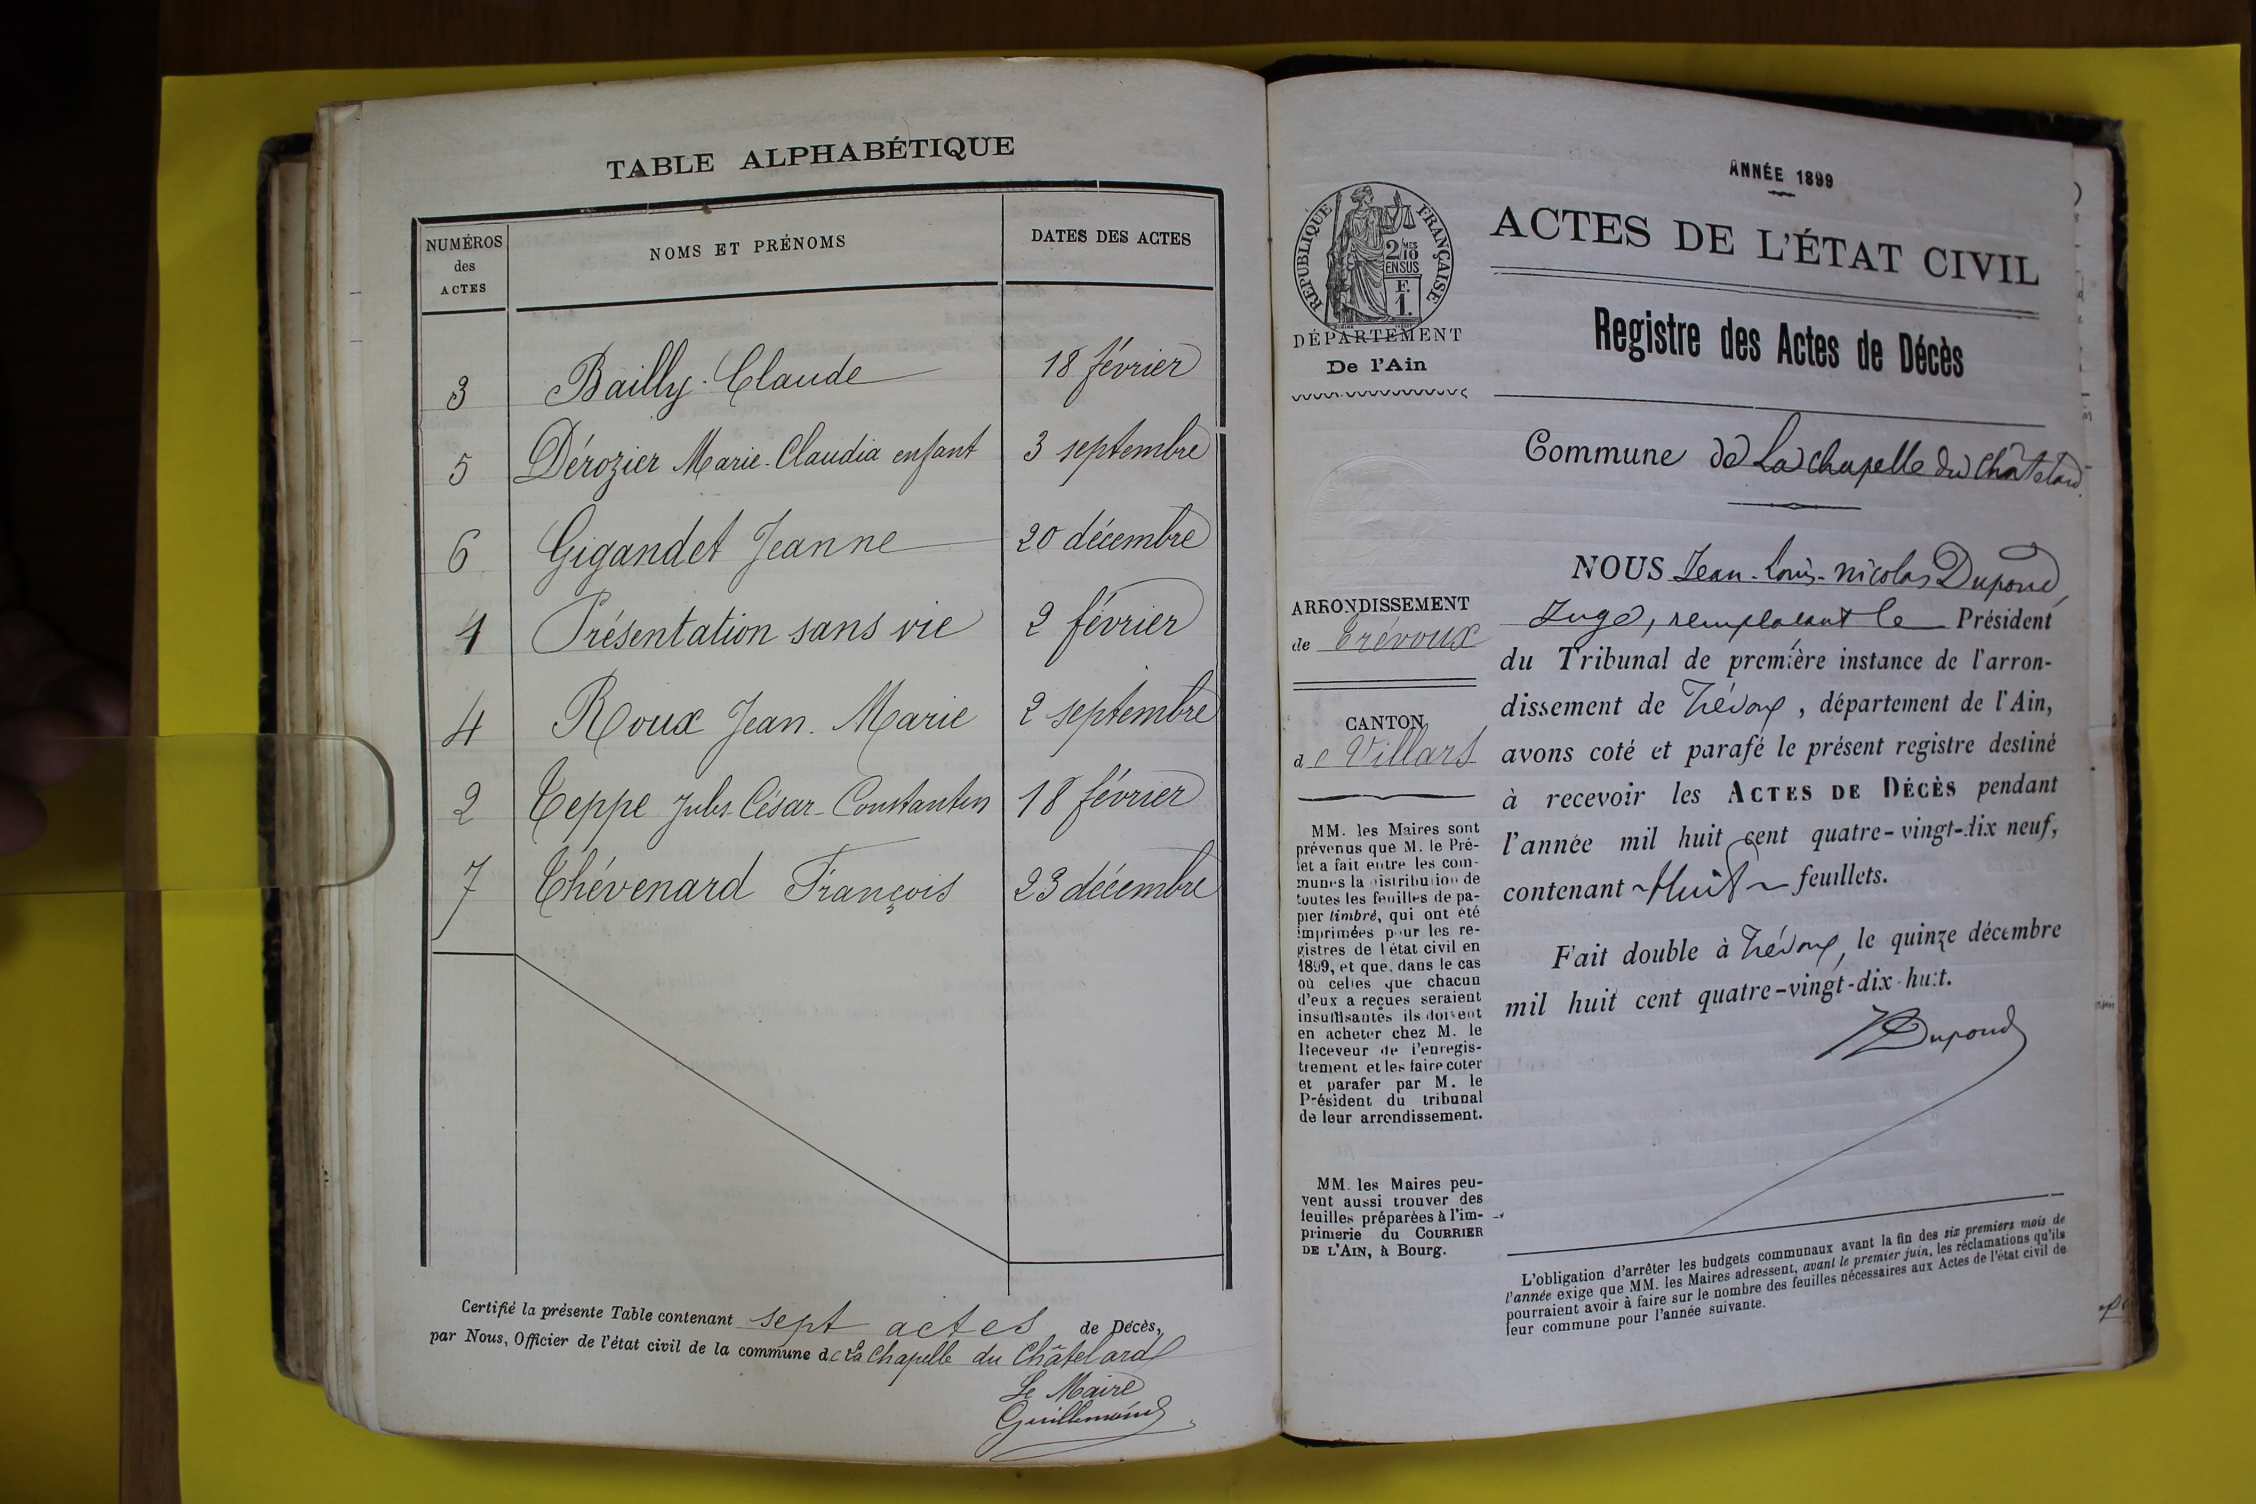 TABLE ALPHABÉTIQUE
NUMÉROS des ACTES
NOMS ET PRÉNOMS
DATES DES ACTES
3 Bailly Claude 18 février
5 Dérozier Marie-Claudia enfant 3 septembre
6 Gigandet Jeanne 20 décembre
1 Présentation sans vie 2 février
4 Roux Jean-Marie 2 septembre
2 Teppe Jules-César-Constantin 18 février
7 Thévenard François 23 décembre
Certifié la présente Table contenant sept actes de Décès,
par Nous, Officier de l'état civil de la commune de La Chapelle du Châtelard
Le Maire
Guillemaud
RÉPUBLIQUE FRANÇAISE
2/10 MES
EN SUS
F.
1.
DÉPARTEMENT
De l'Ain
ARRONDISSEMENT
de Trévoux
CANTON
de Villars
MM. les Maires sont
prévenus que M. le Pré-
fet a fait entre les com-
munes la distribution de
toutes les feuilles de pa-
pier timbré, qui ont été
imprimées pour les re-
gistres de l'état civil en
1899, et que, dans le cas
où celles que chacun
d'eux a reçues seraient
insuffisantes ils doivent
en acheter chez M. le
Receveur de l'enregis-
trement et les faire coter
et parafer par M. le
Président du tribunal
de leur arrondissement.
MM. les Maires peu-
vent aussi trouver des
feuilles préparées à l'im-
primerie du COURRIER
DE L'AIN, à Bourg.
ANNÉE 1899
ACTES DE L'ÉTAT CIVIL
Registre des Actes de Décès
Commune de La Chapelle du Châtelard
NOUS Jean-Louis-Nicolas Dupond,
Juge, remplaçant le Président
du Tribunal de première instance de l'arron-
dissement de Trévoux, département de l'Ain,
avons coté et parafé le présent registre destiné
à recevoir les ACTES DE DÉCÈS pendant
l'année mil huit cent quatre-vingt-dix neuf,
contenant Huit feuillets.
Fait double à Trévoux, le quinze décembre
mil huit cent quatre-vingt-dix-huit.
Dupond
L'obligation d'arrêter les budgets communaux avant la fin des six premiers mois de
l'année exige que MM. les Maires adressent, avant le premier juin, les réclamations qu'ils
pourraient avoir à faire sur le nombre des feuilles nécessaires aux Actes de l'état civil de
leur commune pour l'année suivante.